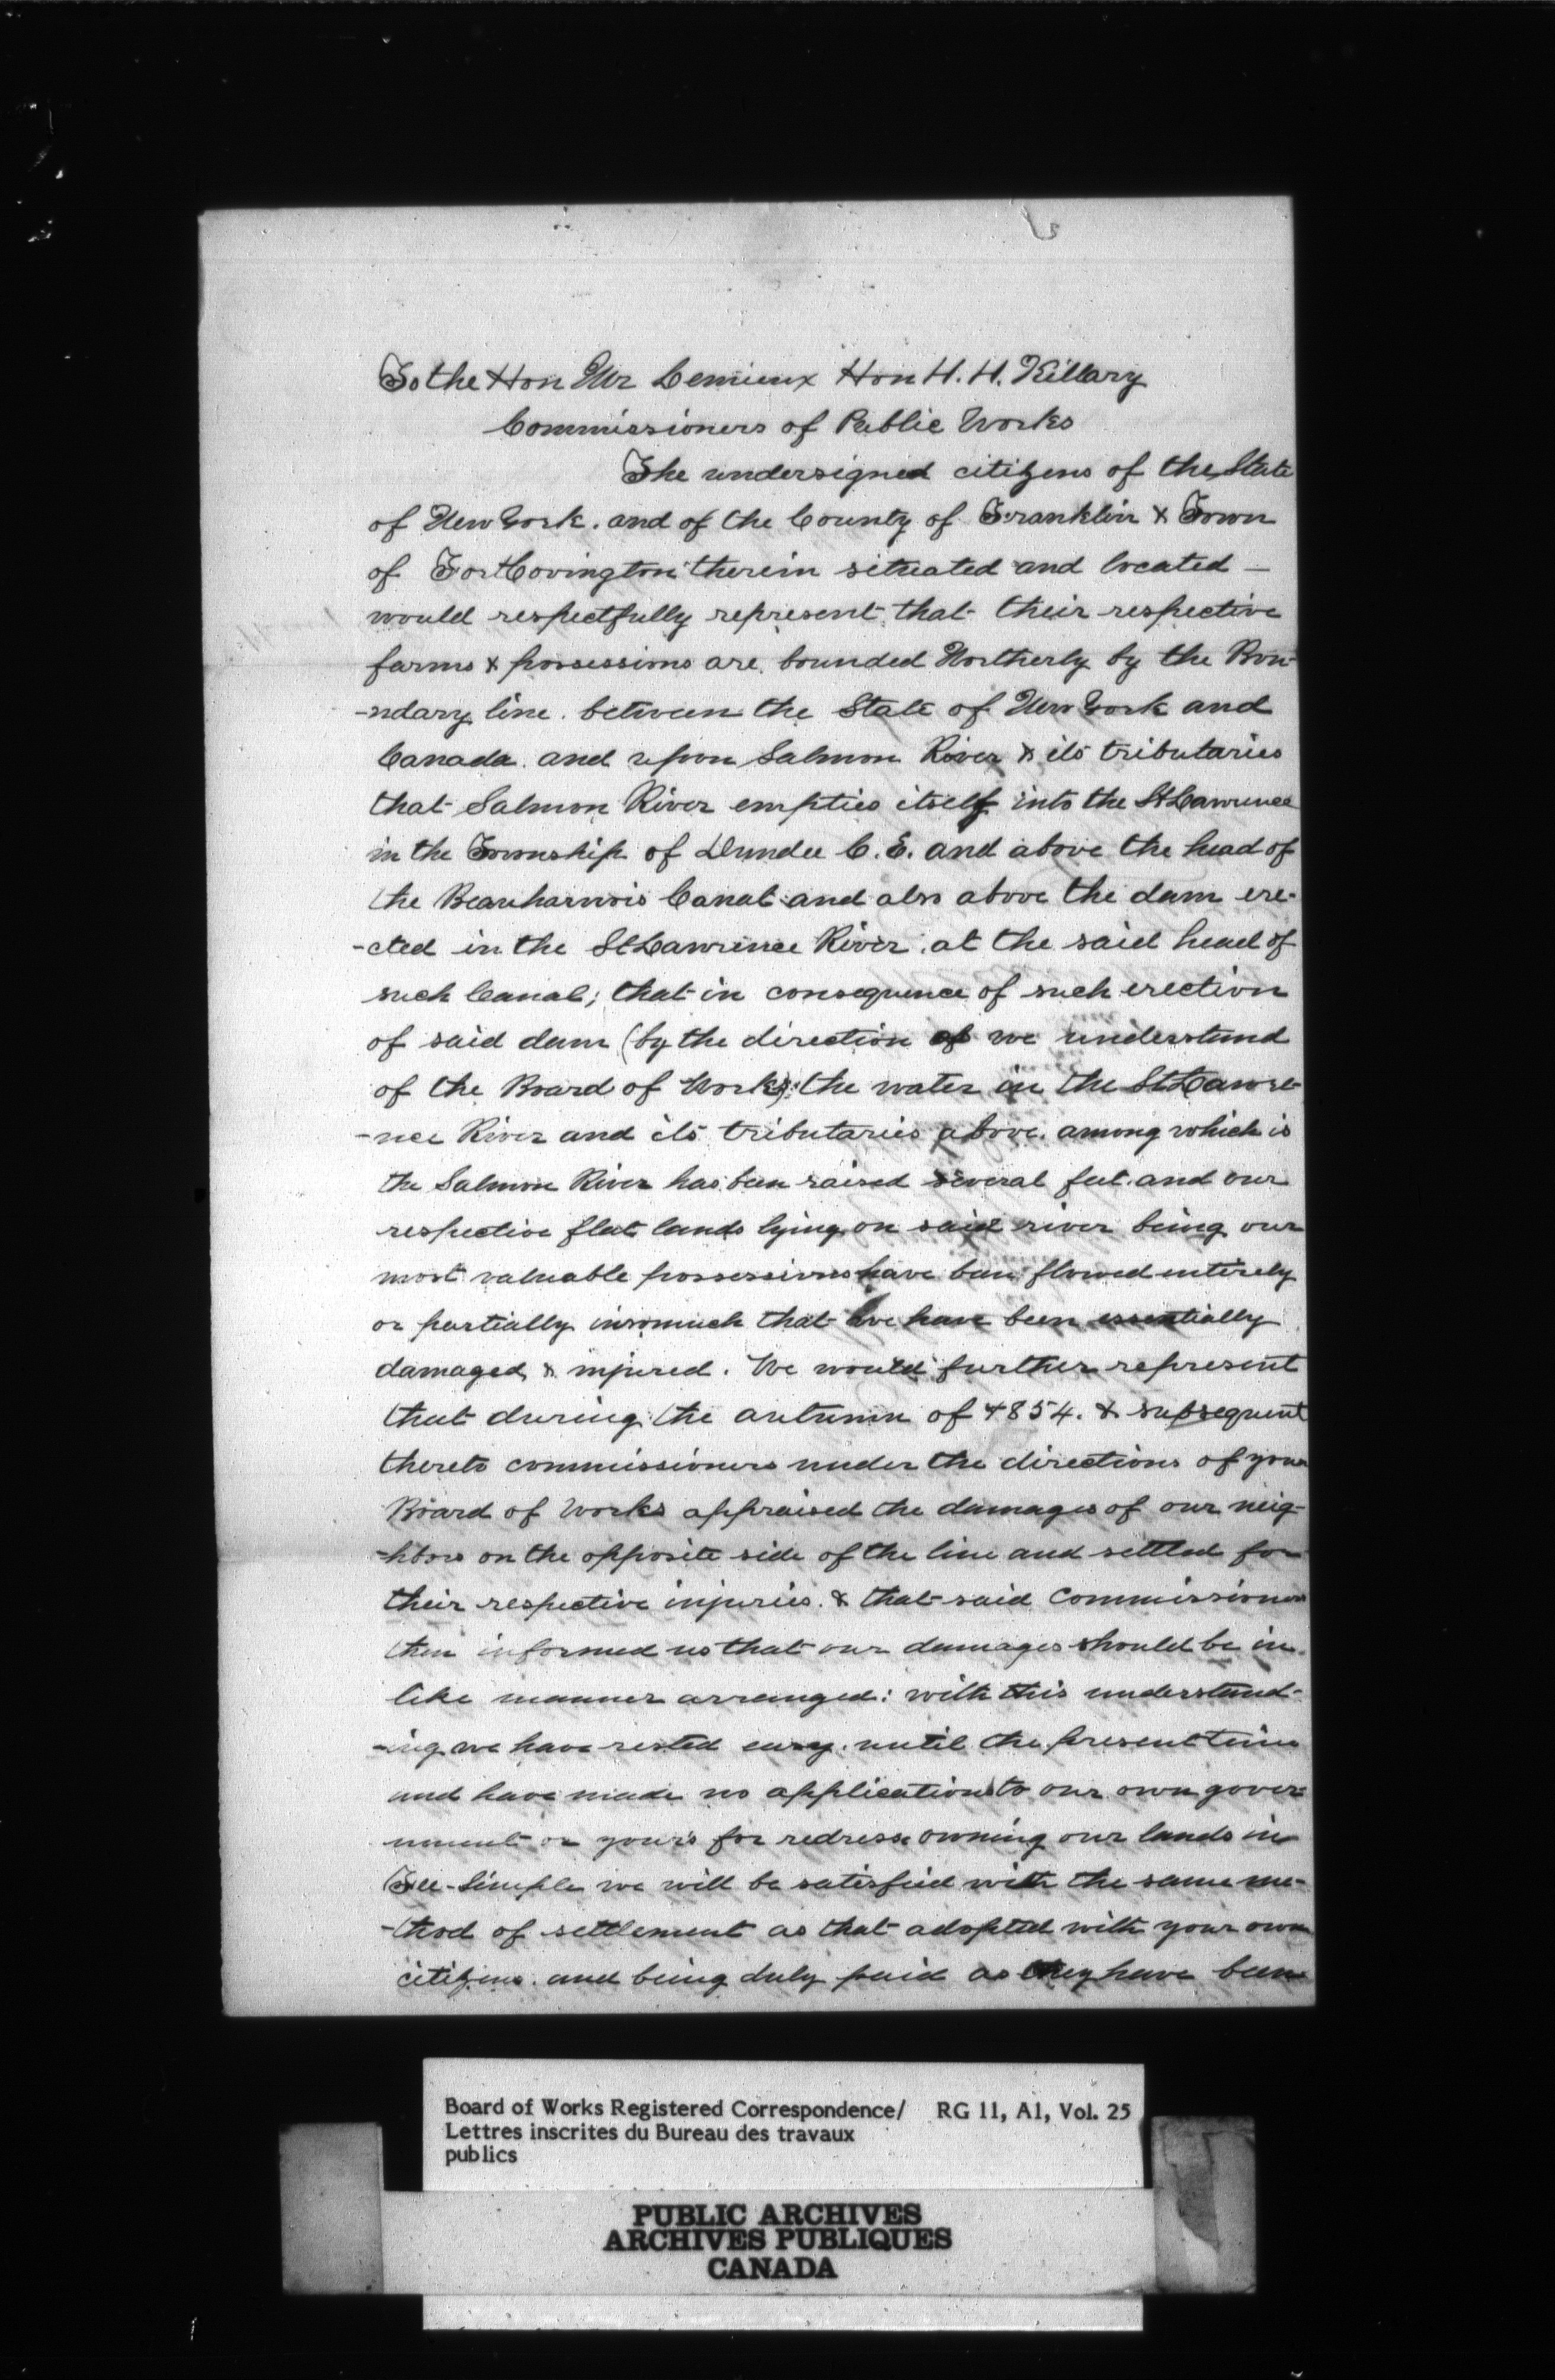 To the Hon Mr Lemieux Hon H. H. Killary
Commissioners of Public Works
The undersigned citizens of the State
of New York. and of the County of Franklin & Town
of Fort Covington therein situated and located —
would respectfully represent that their respective
farms & possessions are bounded Northerly by the Bou-
-ndary line between the State of New York and
Canada. and upon Salmon River & its tributaries
that Salmon River empties itself into the St Lawrence
in the Township of Dundee C. E. and above the head of
the Beauharnois Canal and also above the dam ere-
-cted in the St Lawrence River at the said head of
such Canal; that in consequence of such erection
of said dam (by the direction of we understand
of the Board of Works) the water in the St Lawre-
-nce River and its tributaries above. among which is
the Salmon River has been raised several feet. and our
respective flat lands lying on said river being our
most valuable possessions have been flowed entirely
or partially insomuch that we have been essentially
damaged & injured. We would further represent
that during the autumn of 1854. & subsequent
thereto commissioners under the directions of your
Board of Works appraised the damages of our neig-
-hbors on the opposite side of the line and settled for
their respective injuries. & that said Commissioners
then informed us that our damages should be in
like manner arranged: with this understand-
-ing we have rested easy until the present time
and have made no applications to our own gover-
nment or yours for redress owning our lands in
Fee-Simple we will be satisfied with the same me-
-thod of settlement as that adopted with your own
citizens. and being duly paid as they have been
Board of Works Registered Correspondence/ RG 11, A1, Vol. 25
Lettres inscrites du Bureau des travaux
publics
PUBLIC ARCHIVES
ARCHIVES PUBLIQUES
CANADA